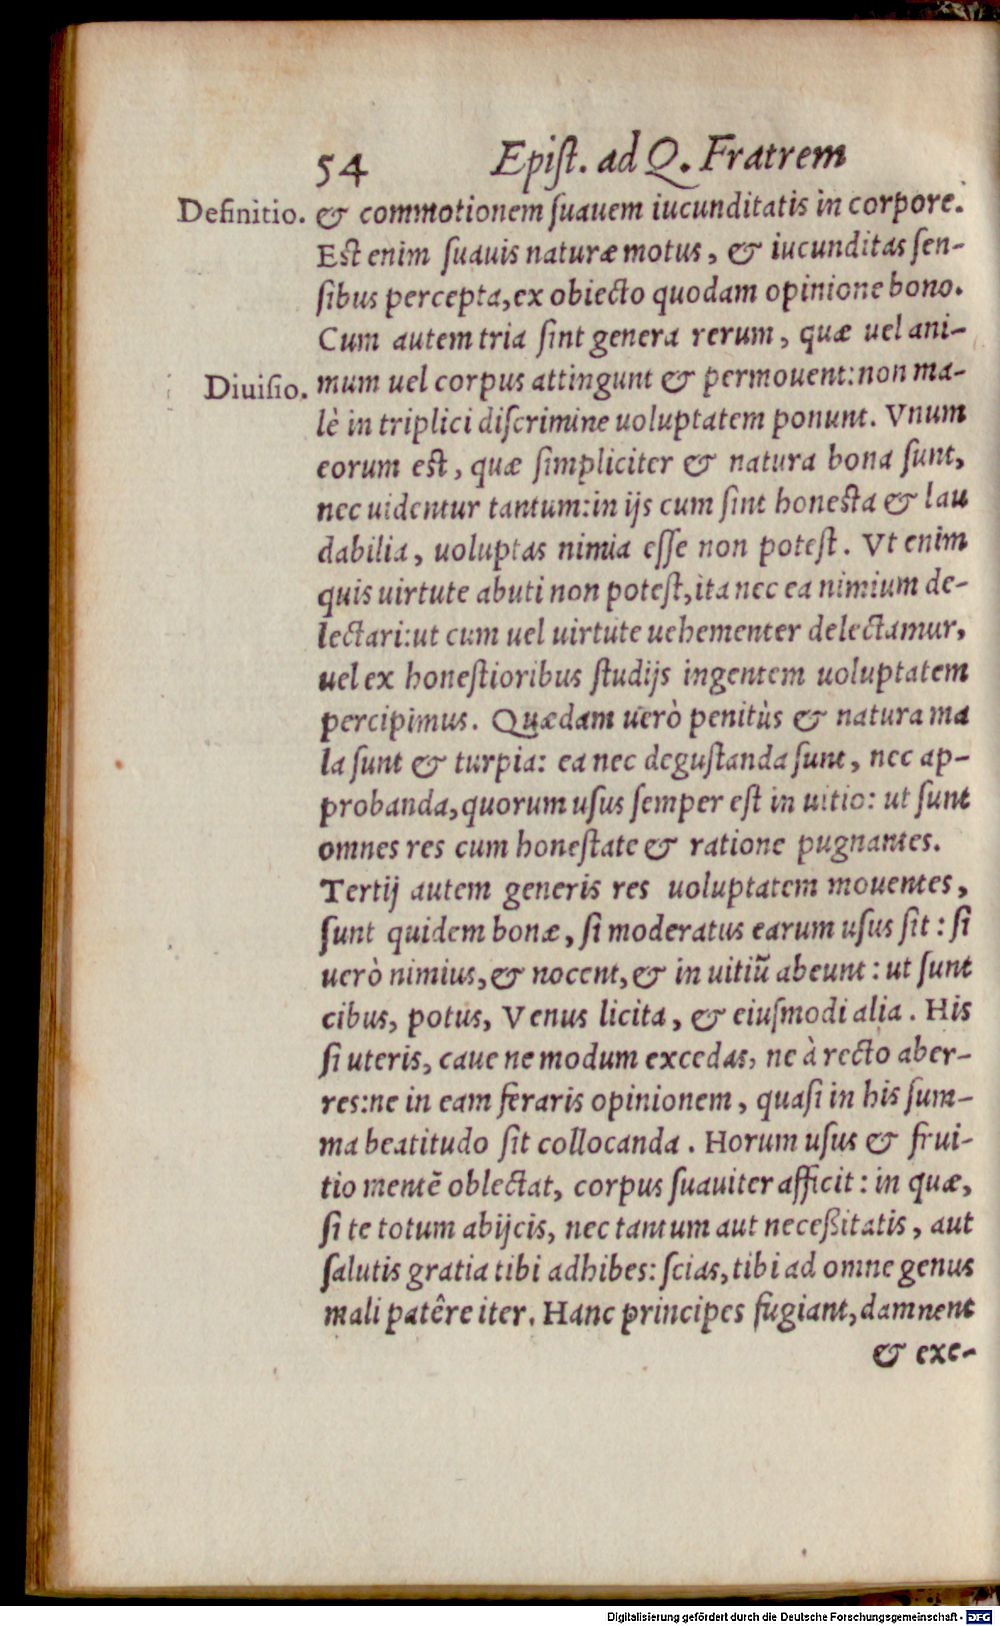 54 Epiſt. ad Q. Fratrem
Definitio. & commotionem ſuauem iucunditatis in corpore.
Est enim ſuauis naturæ motus, & iucunditas ſen-
ſibus percepta, ex obiecto quodam opinione bono.
Cum autem tria ſint genera rerum, quæ uel ani-
Diuiſio. mum uel corpus attingunt & permouent: non ma-
lè in triplici diſcrimine uoluptatem ponunt. Vnum
eorum est, quæ ſimpliciter & natura bona ſunt,
nec uidentur tantum: in ijs cum ſint honesta & lau
dabilia, uoluptas nimia eſſe non poteſt. Vt enim
quis uirtute abuti non poteſt, ita nec ea nimium de-
lectari: ut cum uel uirtute uehementer delectamur,
uel ex honeſtioribus ſtudijs ingentem uoluptatem
percipimus. Quædam uerò penitùs & natura ma
la ſunt & turpia: ea nec deguſtanda ſunt, nec ap-
probanda, quorum uſus ſemper eſt in uitio: ut ſunt
omnes res cum honeſtate & ratione pugnantes.
Tertij autem generis res uoluptatem mouentes,
ſunt quidem bonæ, ſi moderatus earum uſus ſit: ſi
uerò nimius, & nocent, & in uitiũ abeunt: ut ſunt
cibus, potus, Venus licita, & eiuſmodi alia. His
ſi uteris, caue ne modum excedas, ne à recto aber-
res: ne in eam feraris opinionem, quaſi in his ſum-
ma beatitudo ſit collocanda. Horum uſus & frui-
tio mentẽ oblectat, corpus ſuauiter afficit: in quæ,
ſi te totum abijcis, nec tantum aut neceßitatis, aut
ſalutis gratia tibi adhibes: ſcias, tibi ad omne genus
mali patêre iter. Hanc principes fugiant, damnent
& exe-
Digitalisierung gefördert durch die Deutsche Forschungsgemeinschaft - DFG